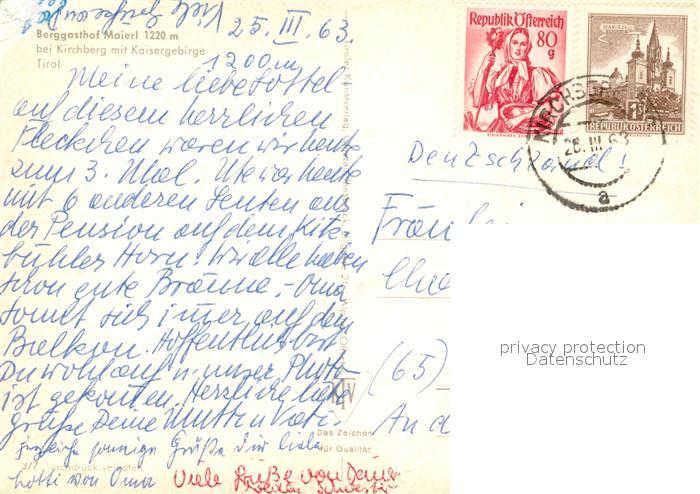 25. III. 63.
Berggasthof Maierl 1220 m
bei Kirchberg mit Kaisergebirge
Tirol
1200m
Meine liebe Lottel
auf diesem herrlichen
Fleckchen waren wir heute
zum 3. Mal. Ute war heute
mit 6 anderen Leuten aus
der Pension auf dem Kitz-
bühler Horn. Wir alle haben
schon gute Bräune, - Oma
sonnt sich immer auf dem
Balkon. Hoffentlich bist
Du wohlauf u. unser Photo
ist gekommen. Herzliche liebe
Grüße Deine Mutti u. Vati
sonnige Grüße Dir liebe
Lotti von Oma
Viele Grüße von Deiner
Schwester
377 Nachdruck verboten
Das Zeichen
für Qualität
Republik Österreich
80
g
MARIAZELL
1S
REPUBLIK ÖSTERREICH
26. III. 63
a
Deutschland!
Fräulei
(65)
privacy protection
Datenschutz